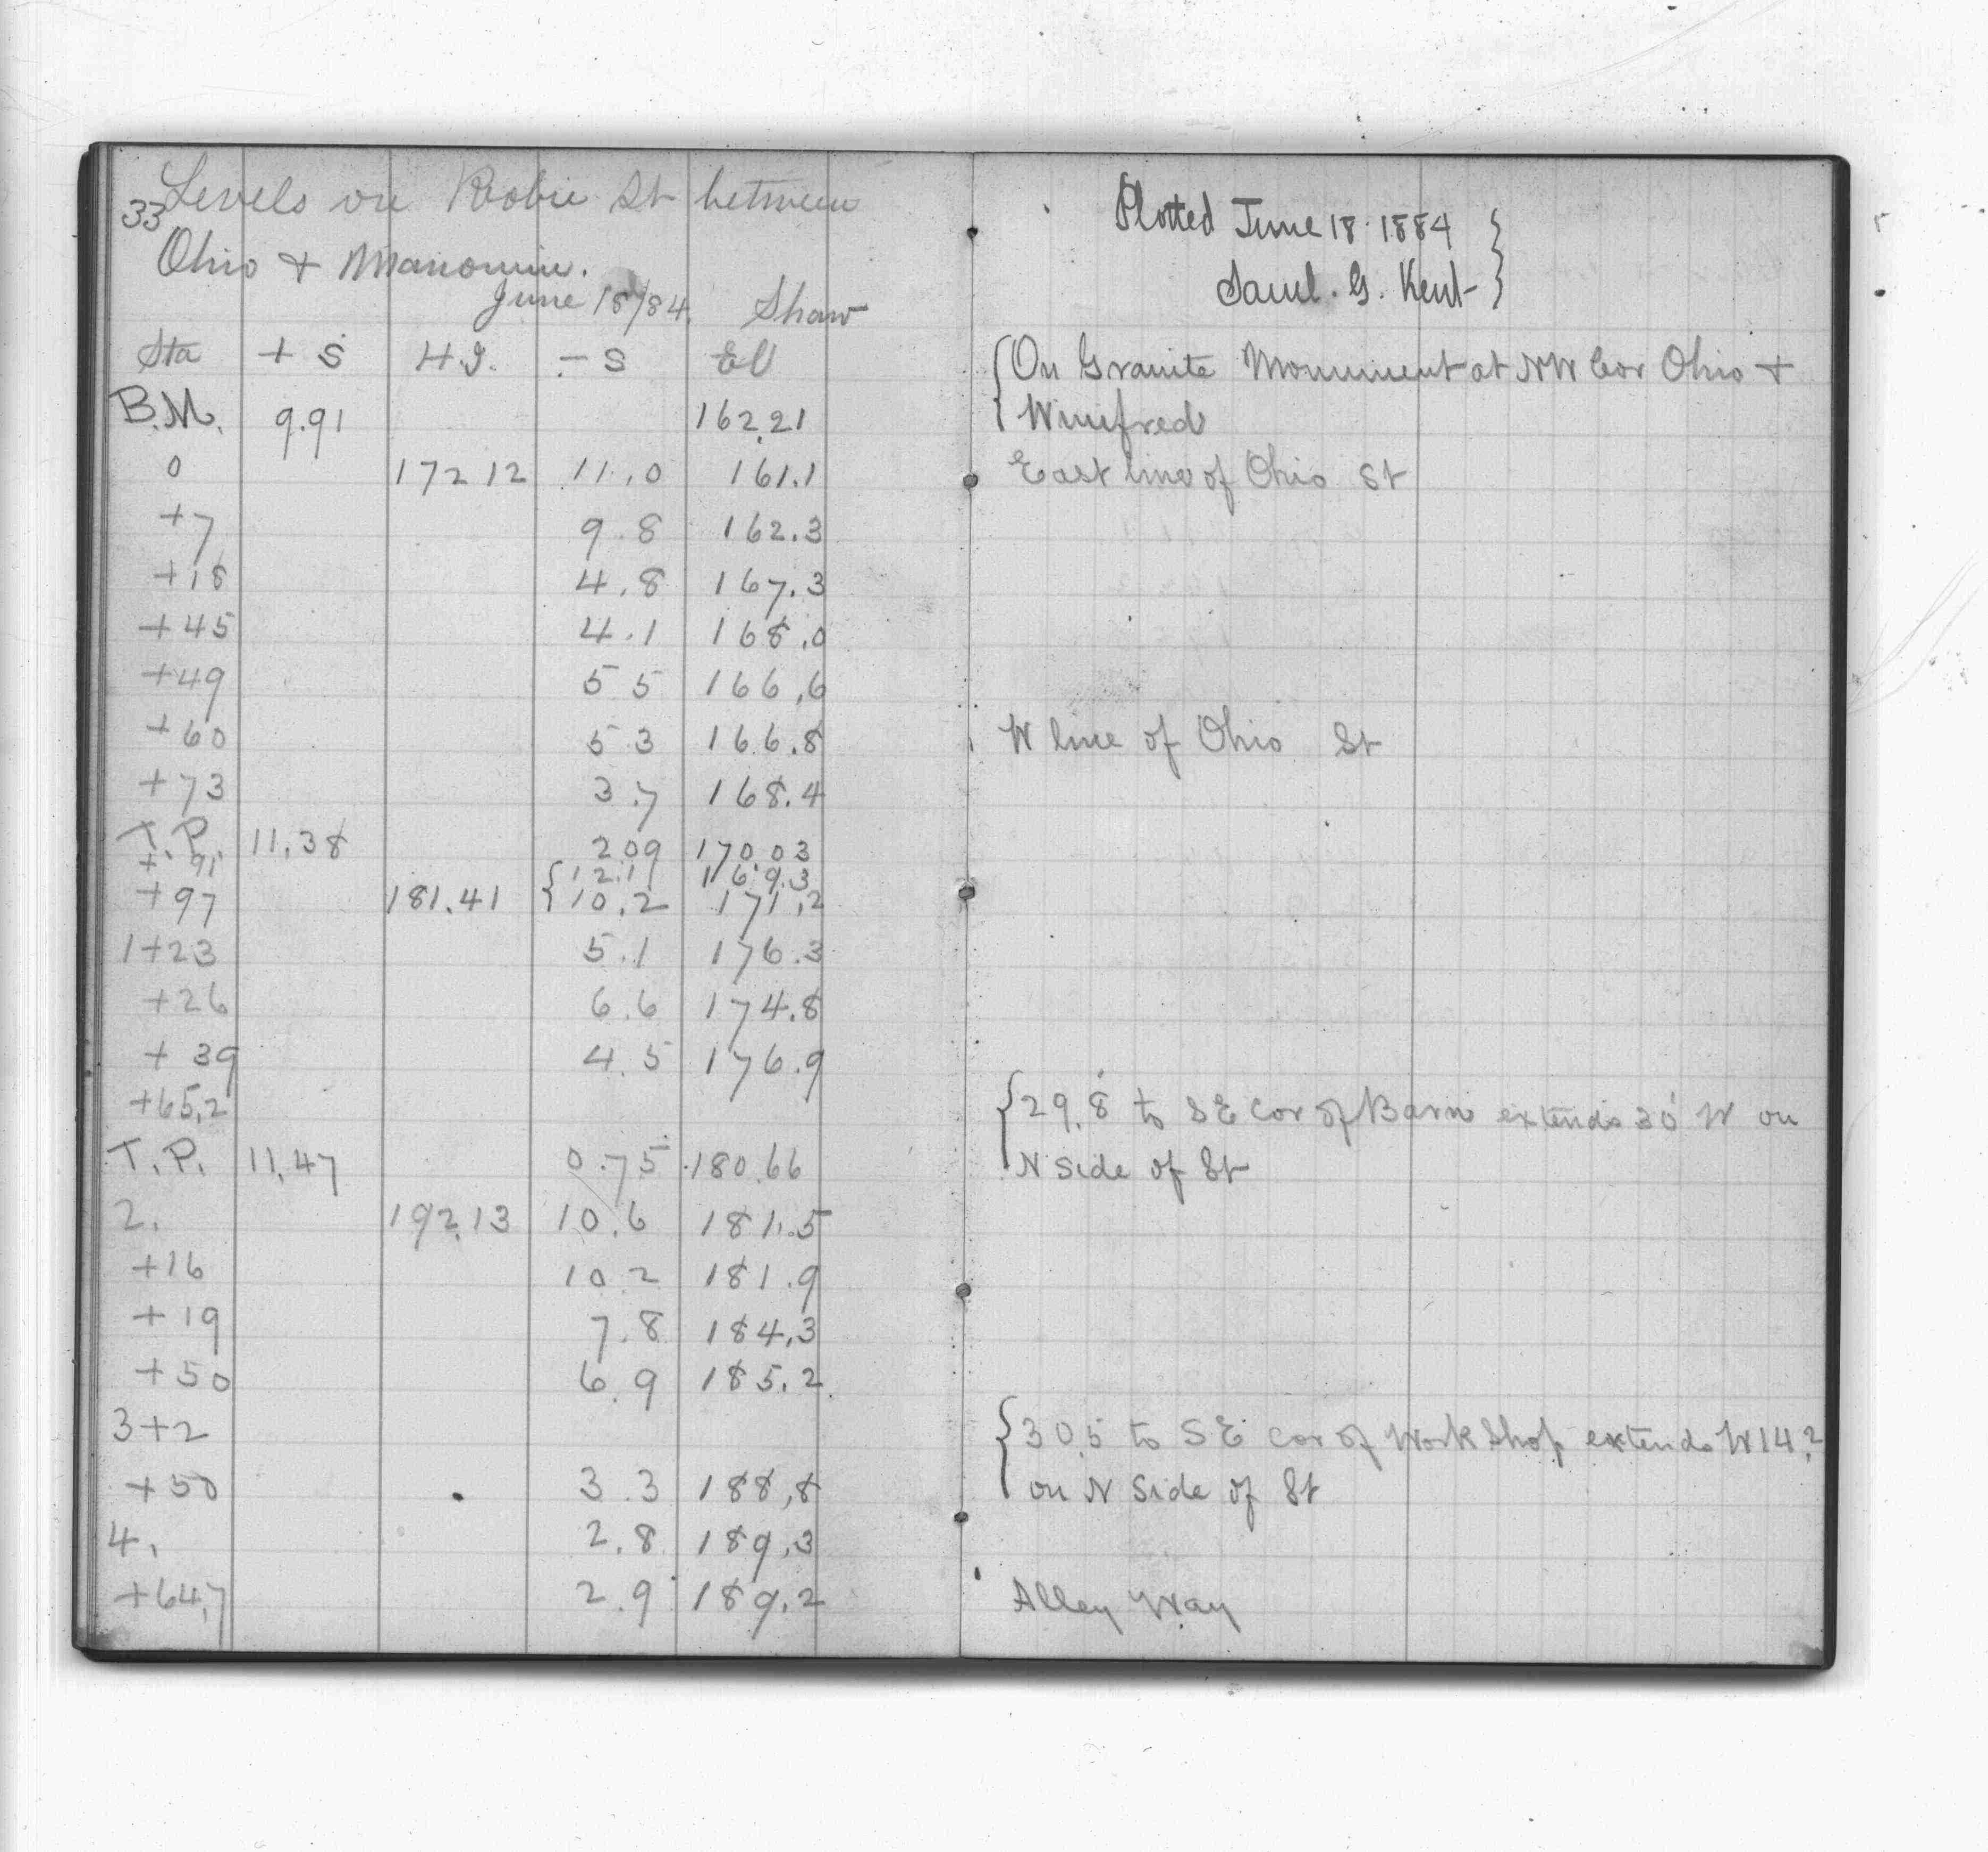 33 Levels on Robie St between
Ohio + Manomin.
June 18/84. Shaw
Sta + S H.I. - S El
B.M. 9.91 162.21
0 172 12 11.0 161.1
+7 9.8 162.3
+18 4.8 167.3
+45 4.1 168.0
+49 5 5 166.6
+60 5 3 166.8
+73 3.7 168.4
T.P. 11.38 2 09 170.03
+ 91 12.1 169.3
+97 181.41 10.2 171.2
1+23 5.1 176.3
+26 6.6 174.8
+ 39 4.5 176.9
+65.2
T.P. 11.47 0.75 180.66
2. 192.13 10.6 181.5
+16 10.2 181.9
+19 7.8 184.3
+50 6.9 185.2
3+2
+50 3.3 188.8
4. 2.8 189.3
+64.7 2.9 189.2
Plotted June 18. 1884
Saml. G. Kent
On Granite Monument at NW Cor Ohio +
Winifred
East line of Ohio St
W line of Ohio St
29.8' to SE Cor of Barn extends 30' W on
N Side of St
30.5 to SE Cor of Work Shop extends W 14.2
on N Side of St
Alley Way